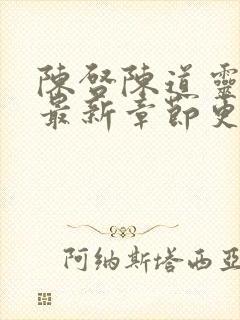 陳啓陳道靈
最新章節更
阿纳斯塔西亚